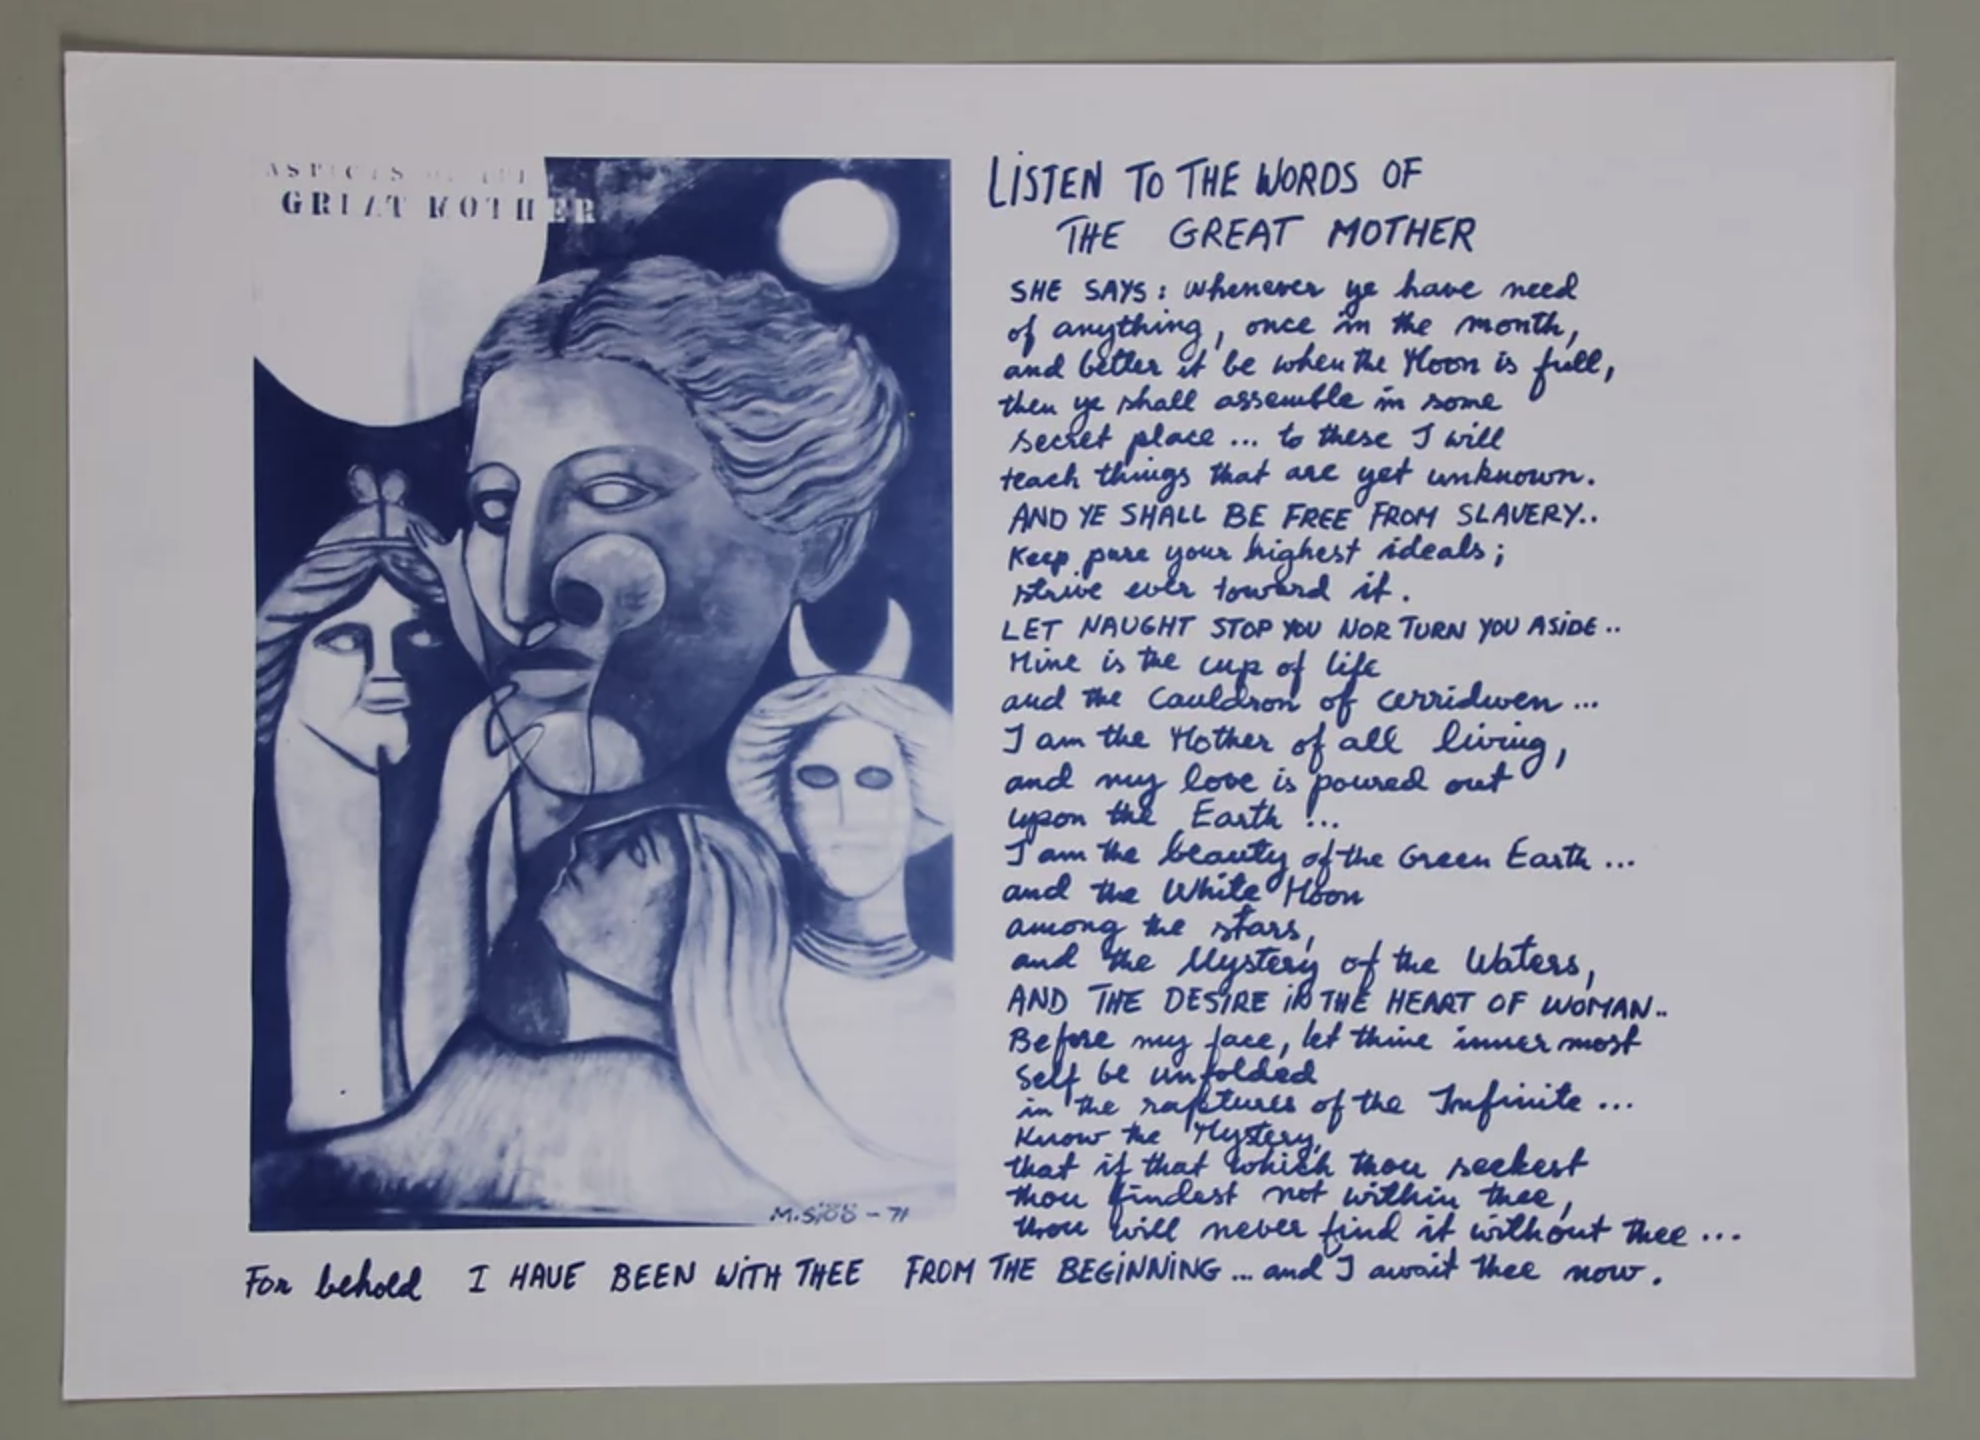 ASPECTS OF THE
GREAT MOTHER
M. Sjöö - 71
LISTEN TO THE WORDS OF
THE GREAT MOTHER
SHE SAYS: Whenever ye have need
of anything, once in the month,
and better it be when the Moon is full,
then ye shall assemble in some
secret place ... to these I will
teach things that are yet unknown.
AND YE SHALL BE FREE FROM SLAVERY..
Keep pure your highest ideals;
strive ever toward it.
LET NAUGHT STOP YOU NOR TURN YOU ASIDE..
Mine is the cup of life
and the Cauldron of Cerridwen ...
I am the Mother of all living,
and my love is poured out
upon the Earth ...
I am the beauty of the Green Earth ...
and the White Moon
among the stars,
and the Mystery of the Waters,
AND THE DESIRE IN THE HEART OF WOMAN..
Before my face, let thine inner most
Self be unfolded
in the raptures of the Infinite ...
Know the Mystery,
that if that which thou seekest
thou findest not within thee,
thou will never find it without thee ...
For behold I HAVE BEEN WITH THEE FROM THE BEGINNING ... and I await thee now.